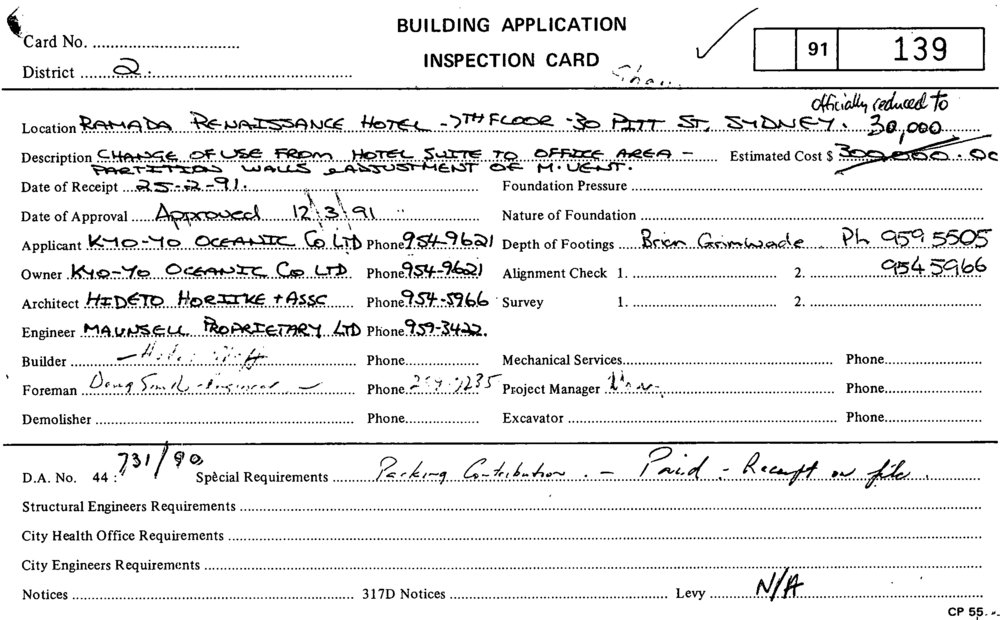 BUILDING APPLICATION
INSPECTION CARD
Card No.
91 139
District 2.
officially reduced to
Location RAMADA RENAISSANCE HOTEL - 7TH FLOOR - 30 PITT ST, SYDNEY. 30,000
Description CHANGE OF USE FROM HOTEL SUITE TO OFFICE AREA - Estimated Cost $ 300,000.00
PARTITION WALLS & ADJUSTMENT OF M.VENT.
Date of Receipt 25-2-91. Foundation Pressure
Date of Approval Approved 12/3/91 Nature of Foundation
Applicant KYO-YO OCEANIC Co LTD Phone 954-9621 Depth of Footings Brian Grimwade Ph 959 5505
Owner KYO-YO OCEANIC Co LTD. Phone 954-9621 Alignment Check 1. 2. 954 5966
Architect HIDETO HORIIKE + ASSC Phone 954-5966 Survey 1. 2.
Engineer MAUNSELL PROPRIETARY LTD Phone 959-3422.
Builder - Hotel Staff Phone Mechanical Services Phone
Foreman Doug Smith Phone Project Manager Phone
Demolisher Phone Excavator Phone
D.A. No. 44: 731/90 Special Requirements Parking Contribution. - Paid - Receipt on file.
Structural Engineers Requirements
City Health Office Requirements
City Engineers Requirements
Notices 317D Notices Levy N/A
CP 55